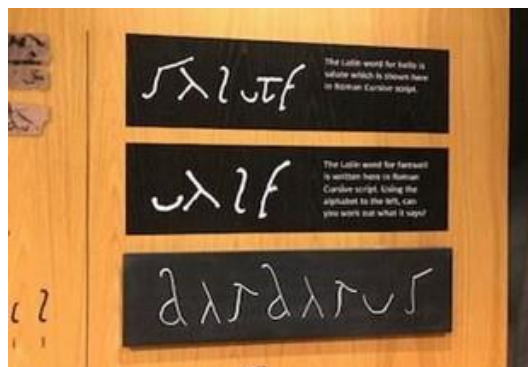 salute
The Latin word for hello is
salute which is shown here
in Roman Cursive script.
vale
The Latin word for farewell
is written here in Roman
Cursive script. Using the
alphabet to the left, can
you work out what it says?
barbarus